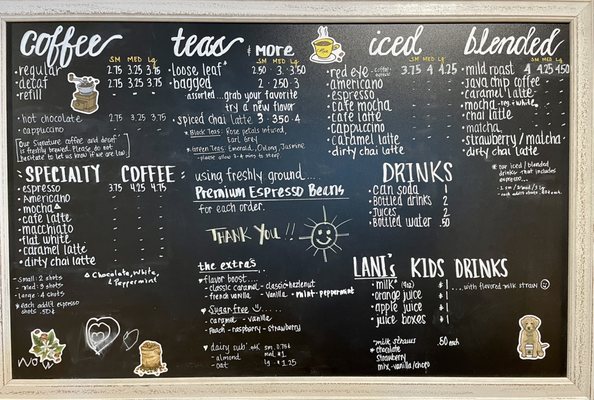 coffee
SM MED Lg
• regular 2.75 3.25 3.75
• decaf 2.75 3.25 3.75
• refill
• hot chocolate 2.75 3.25 3.75
• cappuccino
Our signature coffee and decaf
is freshly brewed. Please do not
hesitate to let us know if we are low!
~SPECIALTY COFFEE~
• espresso 3.75 4.25 4.75
• Americano
• mocha
• cafe latte
• macchiato
• flat white
• caramel latte
• dirty chai latte
• small: 2 shots
• med: 3 shots
• large: 4 shots
*each addit'l espresso
shots .50¢
Chocolate, White,
Peppermint
teas & MORE
SM MED Lg
• loose leaf* 2.50 3 3.50
• bagged 2 2.50 3
assorted... grab your favorite
try a new flavor
• spiced chai latte 3 3.50 4
* Black Teas: Rose petals infused,
Earl Grey
* Green Teas: Emerald, Oolong, Jasmine
- please allow 3-4 min to steep
using freshly ground....
Premium Espresso Beans
for each order.
THANK YOU!!
the extra's
♥ flavor boost....
- classic caramel - classic hazelnut
- french vanilla - vanilla - mint-peppermint
♥ Sugar free
- caramel - vanilla
- Peach - raspberry - strawberry
♥ dairy sub'
- almond
- oat
sm 0.75¢
med. $1
lg - $1.25
iced
SM MED Lg
• red eye 3.75 4 4.25
• americano
• espresso
• cafe mocha
• cafe latte
• cappuccino
• caramel latte
• dirty chai latte
DRINKS
• can soda 1
• Bottled drinks 2
• Juices 2
• Bottled water .50
LANI's KIDS DRINKS
• milk* $1 ... with flavored milk straw
• orange juice $1
• apple juice $1
• juice boxes $1
• milk straws .50 each
* chocolate
strawberry
mix-vanilla/choco
blended
SM MED Lg
• mild roast 4 4.25 4.50
• java chip coffee
• caramel latte
• mocha reg + white
• chai latte
• matcha
• strawberry/matcha
• dirty chai latte
* our iced/blended
drinks that includes
espresso...